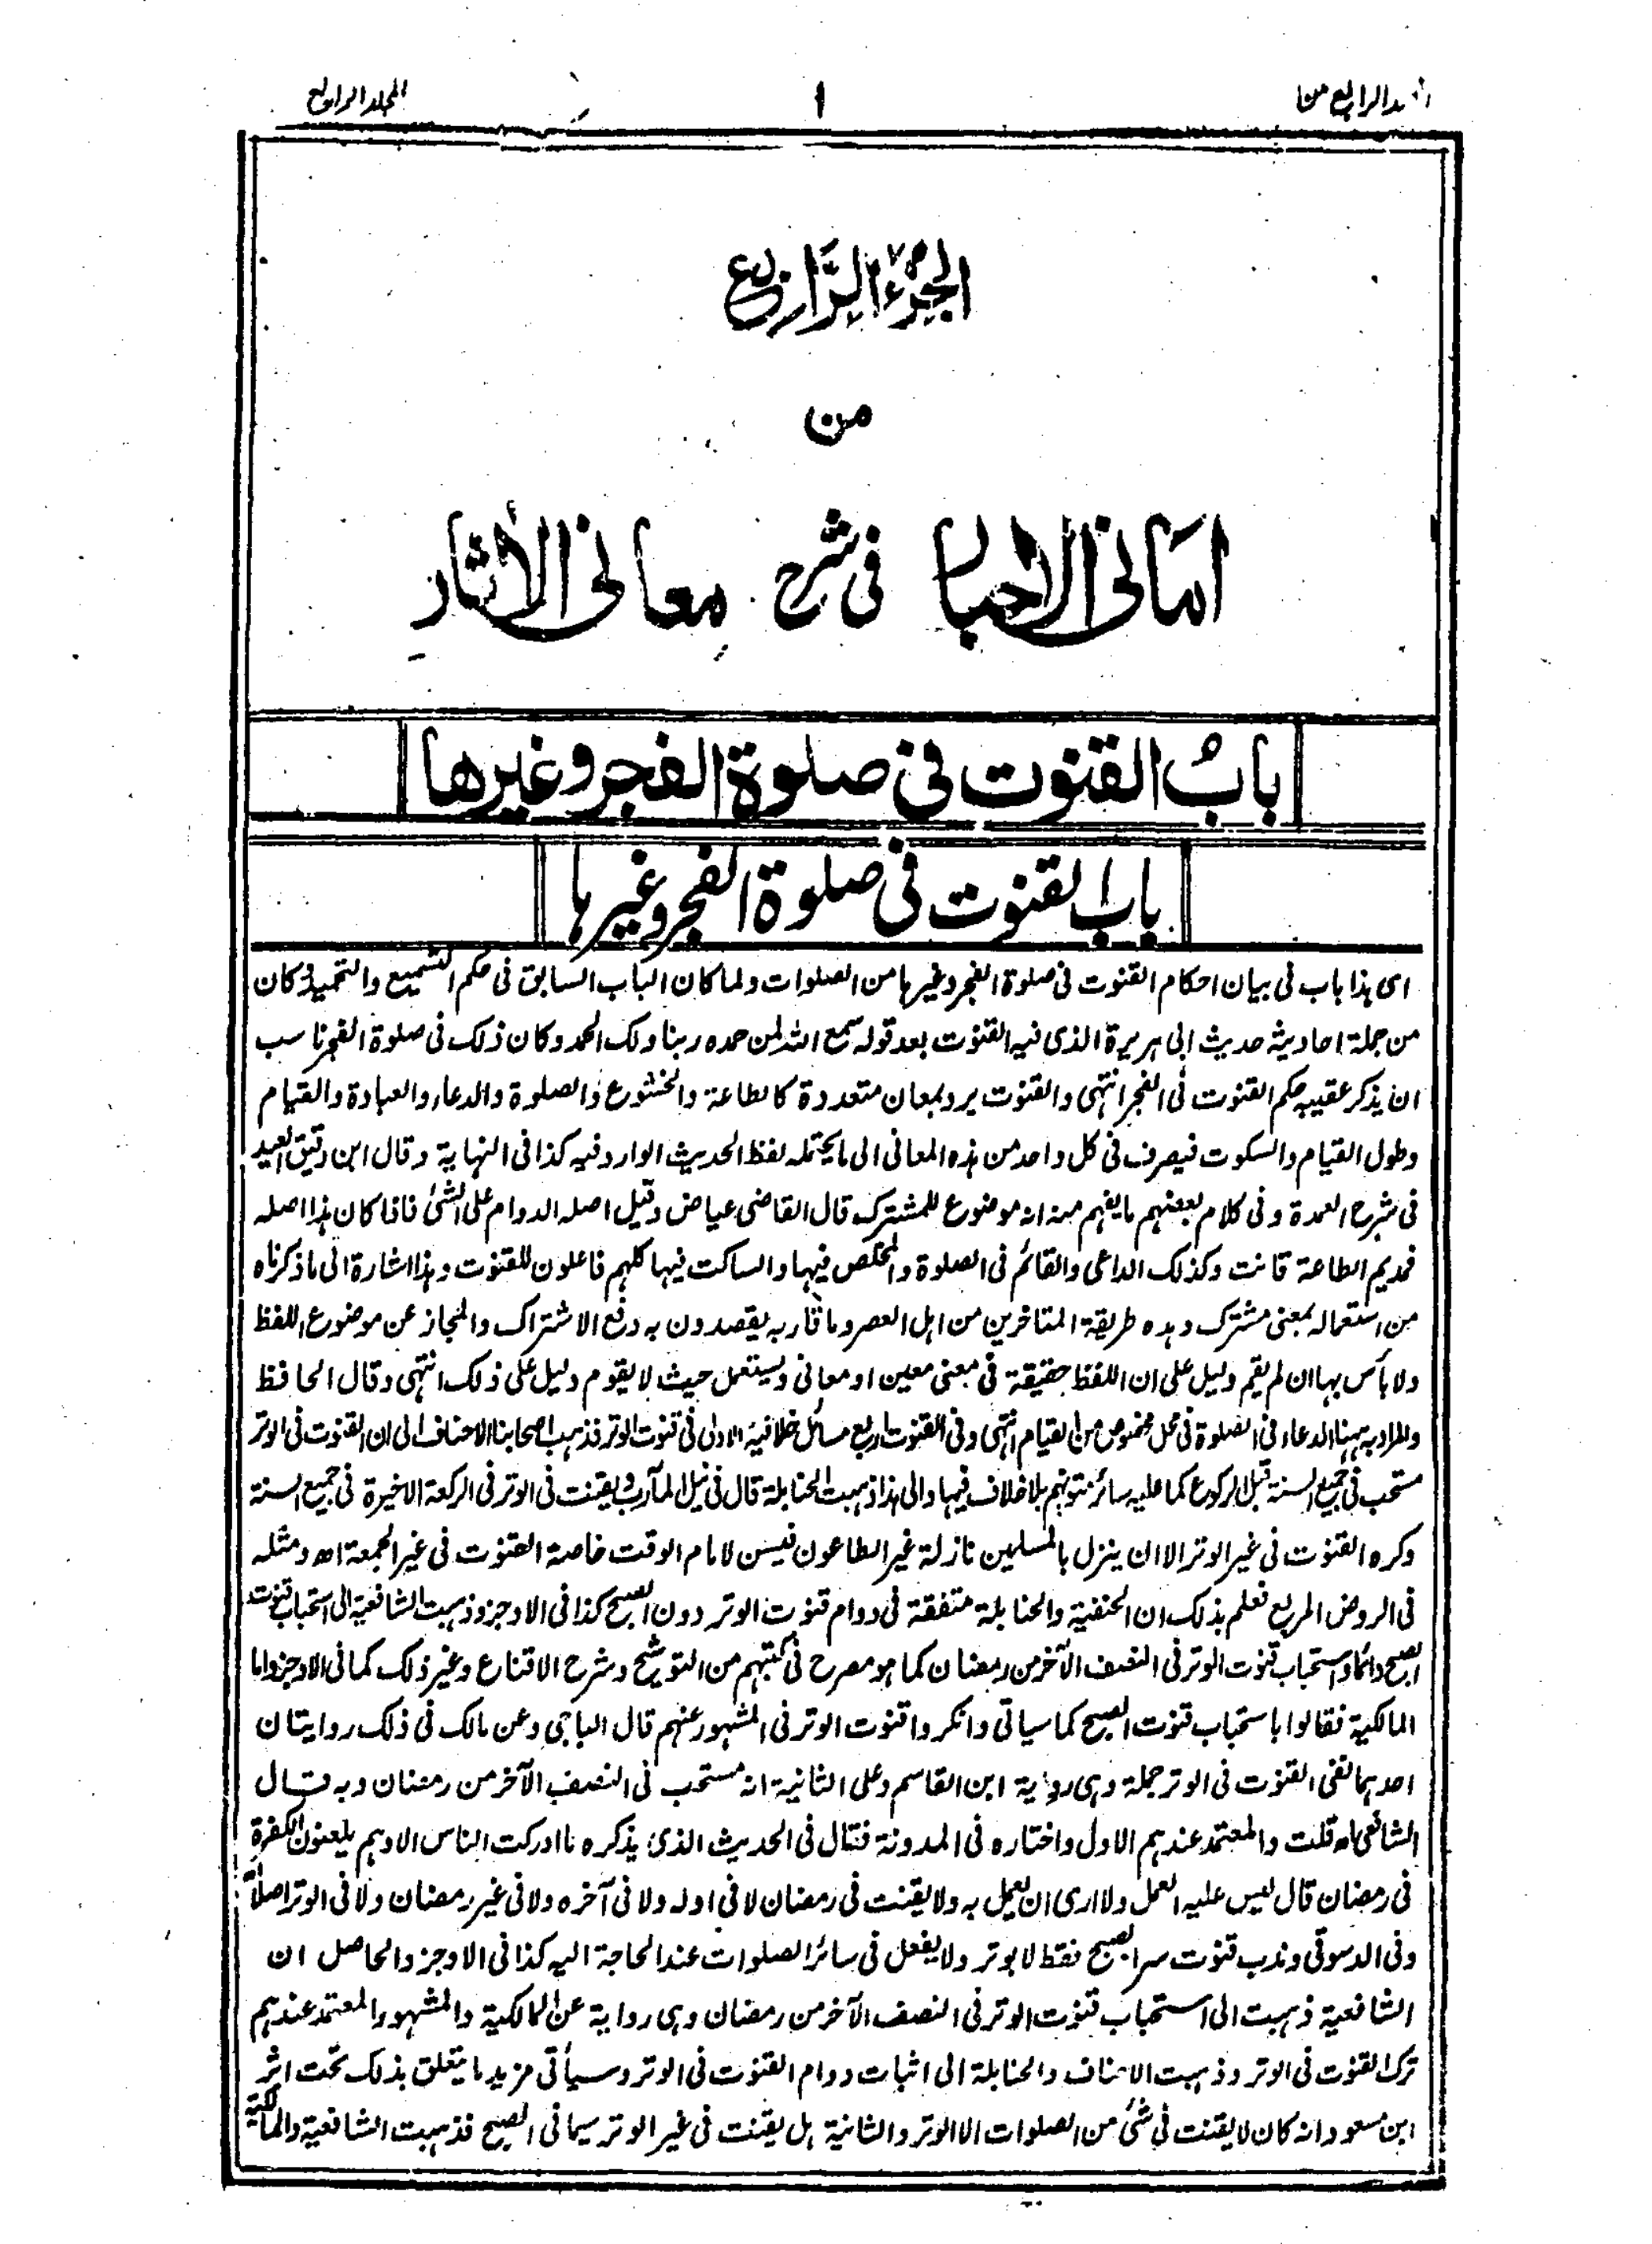 المجلد الرابع من
١
المجلد الرابع
الجزء الرابع
من
امانی الاحبار فی شرح معانی الأثار
بابُ القنوت فی صلوة الفجر وغیرها
باب القنوت فی صلوة الفجر وغیرها
ای هذا باب فی بیان احکام القنوت فی صلوة الفجر وغیرها من الصلوات ولما کان الباب السابق فی حکم التسمیع والتحمید وکان
من جملة احادیثه حدیث ابی هریرة الذی فیه القنوت بعد قوله سمع الله لمن حمده ربنا ولک الحمد وکان ذلک فی صلوة الفجر ناسب
ان یذکر عقیبه حکم القنوت فی الفجر انتهی والقنوت یرد بمعان متعددة کالطاعة والخشوع والصلوة والدعاء والعبادة والقیام
وطول القیام والسکوت فیصرف فی کل واحد من هذه المعانی الی ما یحتمله لفظ الحدیث الوارد فیه کذا فی النهایة وقال ابن دقیق العید
فی شرح العمدة وفی کلام بعضهم ما یفهم منه انه موضوع للمشترک قال القاضی عیاض وقیل اصله الدوام علی الشیٔ فاذا کان هذا اصله
فمدیم الطاعة قانت وکذلک الداعی والقائم فی الصلوة والمخلص فیها والساکت فیها کلهم فاعلون للقنوت وهذا اشارة الی ما ذکرناه
من استعماله بمعنی مشترک وهذه طریقة المتاخرین من اهل العصر وما قاربه یقصدون به دفع الاشتراک والمجاز عن موضوع اللفظ
ولا بأس بها ان لم یقم دلیل علی ان اللفظ حقیقة فی معنی معین او معانی ویستعمل حیث لا یقوم دلیل علی ذلک انتهی وقال الحافظ
والمراد به ههنا الدعاء فی الصلوة فی محل مخصوص من القیام انتهی وفی القنوت اربع مسائل خلافیة الاولی فی قنوت الوتر فذهب اصحابنا الاحناف الی ان القنوت فی الوتر
مستحب فی جمیع السنة قبل الرکوع کما علیه سائر متونهم بلا خلاف فیها والی هذا ذهبت الحنابلة قال فی نیل المآرب ویقنت فی الوتر فی الرکعة الاخیرة فی جمیع السنة
وکره القنوت فی غیر الوتر الا ان ینزل بالمسلمین نازلة غیر الطاعون فیسن لامام الوقت خاصة القنوت فی غیر الجمعة اهـ ومثله
فی الروض المربع فعلم بذلک ان الحنفیة والحنابلة متفقة فی دوام قنوت الوتر دون الصبح کذا فی الاوجز وذهبت الشافعیة الی استحباب قنوت
الصبح دائما واستحباب قنوت الوتر فی النصف الآخر من رمضان کما هو مصرح فی کتبهم من التوشیح وشرح الاقناع وغیر ذلک کما فی الاوجز واما
المالکیة فقالوا باستحباب قنوت الصبح کما سیاتی وانکروا قنوت الوتر فی المشهور عنهم قال الباجی وعن مالک فی ذلک روایتان
احدهما نفی القنوت فی الوتر جملة وهی روایة ابن القاسم وعلی الثانیة انه مستحب فی النصف الآخر من رمضان وبه قال
الشافعی اهـ قلت والمعتمد عندهم الاول واختاره فی المدونة فقال فی الحدیث الذی یذکره ما ادرکت الناس الا وهم یلعنون الکفرة
فی رمضان قال لیس علیه العمل ولا اری ان یعمل به ولا یقنت فی رمضان لا فی اوله ولا فی آخره ولا فی غیر رمضان ولا فی الوتر اصلاً
وفی الدسوقی وندب قنوت سرا بصبح فقط لا بوتر ولا یفعل فی سائر الصلوات عند الحاجة الیه کذا فی الاوجز والحاصل ان
الشافعیة ذهبت الی استحباب قنوت الوتر فی النصف الآخر من رمضان وهی روایة عن المالکیة والمشهور المعتمد عندهم
ترک القنوت فی الوتر وذهبت الاحناف والحنابلة الی اثبات دوام القنوت فی الوتر وسیأتی مزید ما یتعلق بذلک تحت اثر
ابن مسعود انه کان لا یقنت فی شیٔ من الصلوات الا الوتر والثانیة هل یقنت فی غیر الوتر سیما فی الصبح فذهبت الشافعیة والمالکیة